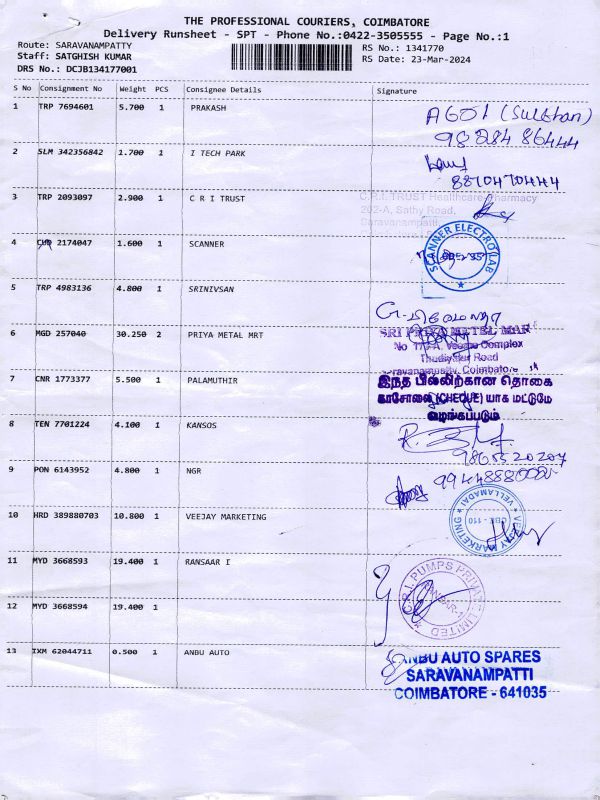 THE PROFESSIONAL COURIERS, COIMBATORE
Delivery Runsheet - SPT - Phone No.:0422-3505555 - Page No.:1
Route: SARAVANAMPATTY
RS No.: 1341770
Staff: SATGHISH KUMAR
RS Date: 23-Mar-2024
DRS No.: DCJB134177001
S No Consignment No Weight PCS Consignee Details Signature
1 TRP 7694601 5.700 1 PRAKASH
A601 (Sulthan)
2 SLM 342356842 1.700 1 I TECH PARK
8870470444
3 TRP 2093097 2.900 1 C R I TRUST
C.R.I. TRUST Healthcare Pharmacy
202-A, Sathy Road,
Saravanampatti,
4 2174047 1.600 1 SCANNER
SCANNER ELECTRO LAB
5 TRP 4983136 4.800 1 SRINIVSAN
6 MGD 257040 30.250 2 PRIYA METAL MRT
SRI PRIYA METEL MAR
Complex
Thudiyalur Road
Saravanampatty, Coimbatore
7 CNR 1773377 5.500 1 PALAMUTHIR
இந்த பில்லிற்கான தொகை
காசோலை (CHEQUE) யாக மட்டுமே
வழங்கப்படும்
8 TEN 7701224 4.100 1 KANSOS
9865520207
9 PON 6143952 4.800 1 NGR
10 HRD 389880703 10.800 1 VEEJAY MARKETING
VEEJAY MARKETING
VELLAMADAI
CBE - 110
11 MYD 3668593 19.400 1 RANSAAR I
C.R.I. PUMPS PRIVATE LIMITED
12 MYD 3668594 19.400 1
13 IXM 62044711 0.500 1 ANBU AUTO
ANBU AUTO SPARES
SARAVANAMPATTI
COIMBATORE - 641035